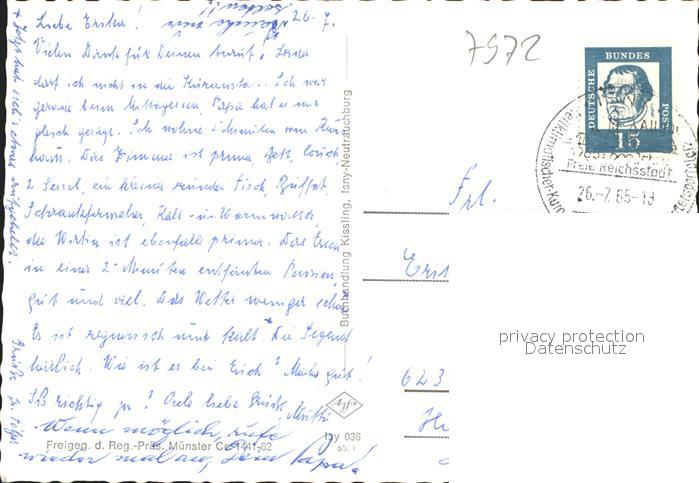 26. 7.
Liebe Erika!
Vielen Dank für deinen Anruf! Leider
darf ich nicht in die Kuranst... Ich war
gerade beim Mittagessen, Papa hat es mir
gleich gesagt. Ich wohne 5 Minuten vom Kur
haus. Das Zimmer ist prima, Bett, Couch
2 Sessel, ein kleiner runder Tisch, Büffet,
Schrank, Kalt- u. Warmwasser,
die Wirtin ist ebenfalls prima. Das Essen
in einer 2 Minuten entfernten Pension,
gut und viel. Das Wetter weniger schön
Es ist regnerisch und kalt.* Die Gegend
herrlich. Wie ist es bei Euch? Macht's gut!
Eßt richtig ja? Viele liebe Grüße, Mutti
Wenn möglich, rufe
wieder mal an, Dein Papa!
* Jetzt hat sich's etwas aufgehellt.
Buchhandlung Kissling, Isny-Neutrauchburg
Freigeg. d. Reg.-Präs. Münster Cr 1441-62
Isy 036
Agfa
7972
DEUTSCHE
BUNDES
POST
15
Freie Reichsstadt
26.-7.65-18
Frl.
623
privacy protection
Datenschutz